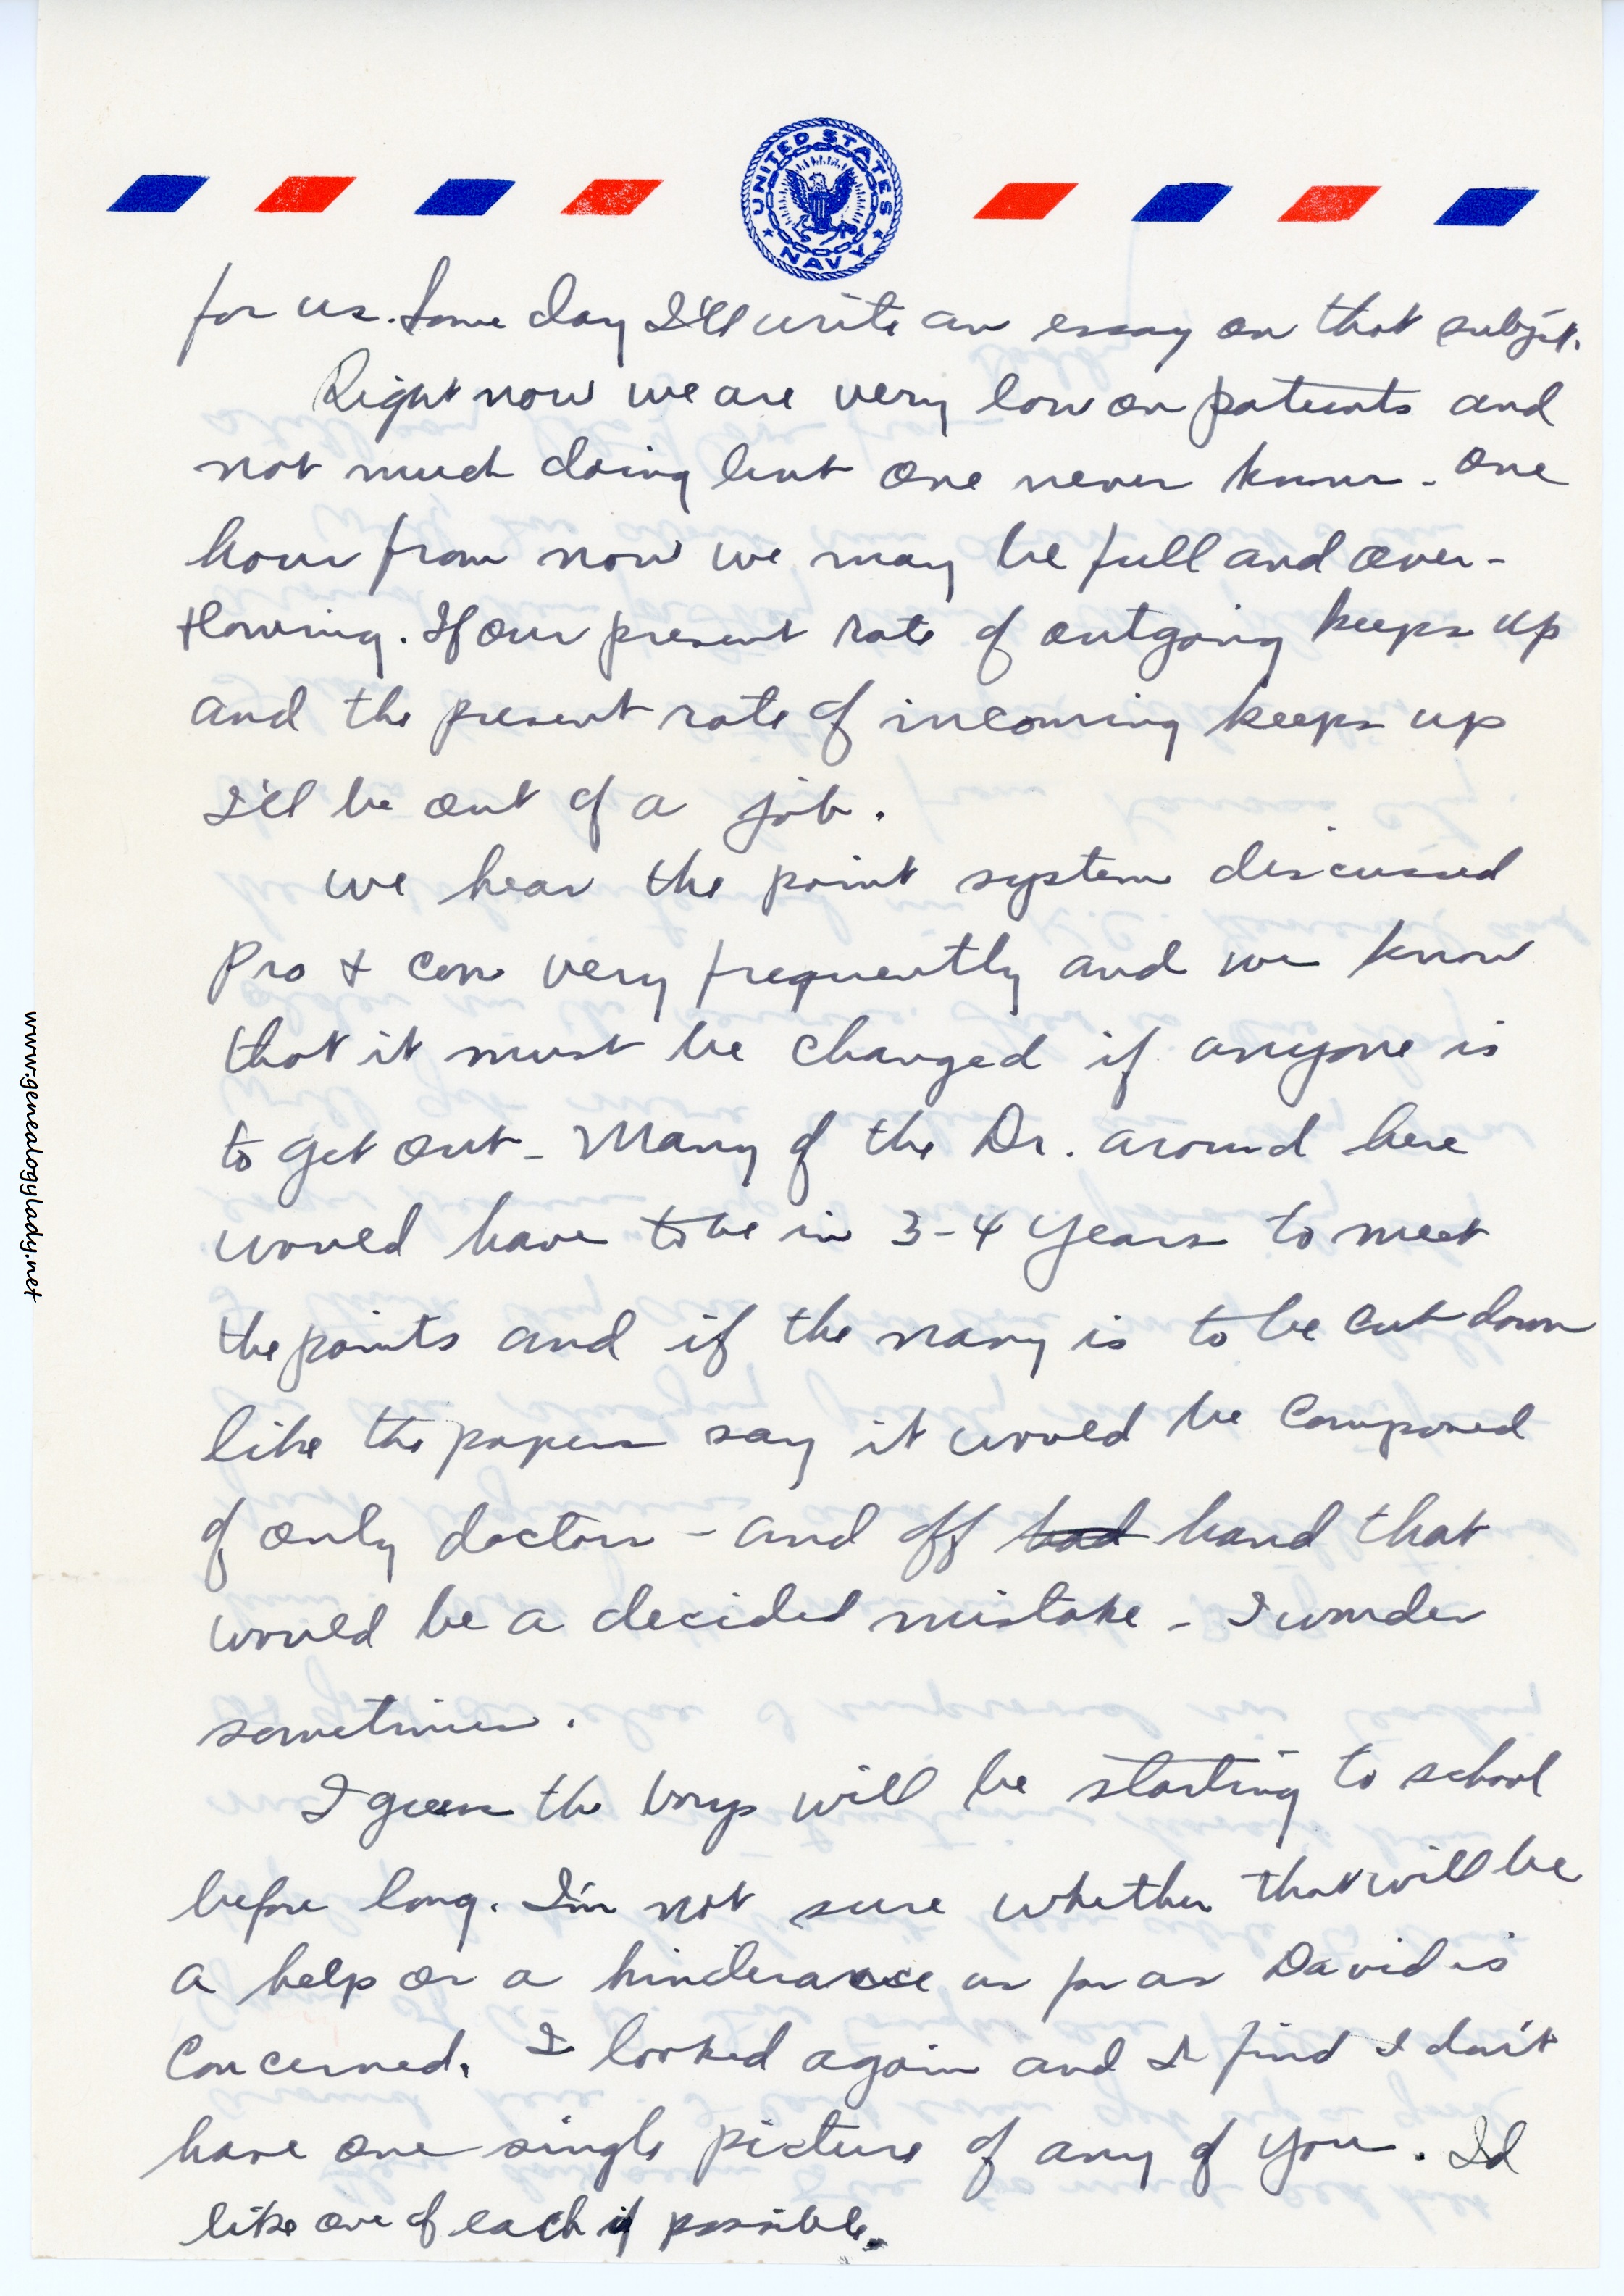 UNITED STATES NAVY
for us. Some day I'll write an essay on that subject.
Right now we are very low on patients and
not much doing but one never knows - one
hour from now we may be full and over-
flowing. If our present rate of outgoing keeps up
and the present rate of incoming keeps up
I'll be out of a job.
We hear the point system discussed
pro & con very frequently and we know
that it must be changed if anyone is
to get out - Many of the Dr. around here
would have to be in 3-4 years to meet
the points and if the navy is to be cut down
like the papers say it would be composed
of only doctors - and off had hand that
would be a decided mistake - I wonder
sometimes.
I guess the boys will be starting to school
before long. I'm not sure whether that will be
a help or a hinderance as far as David is
concerned. I looked again and I find I don't
have one single picture of any of you. I'd
like one of each if possible.
www.genealogylady.net